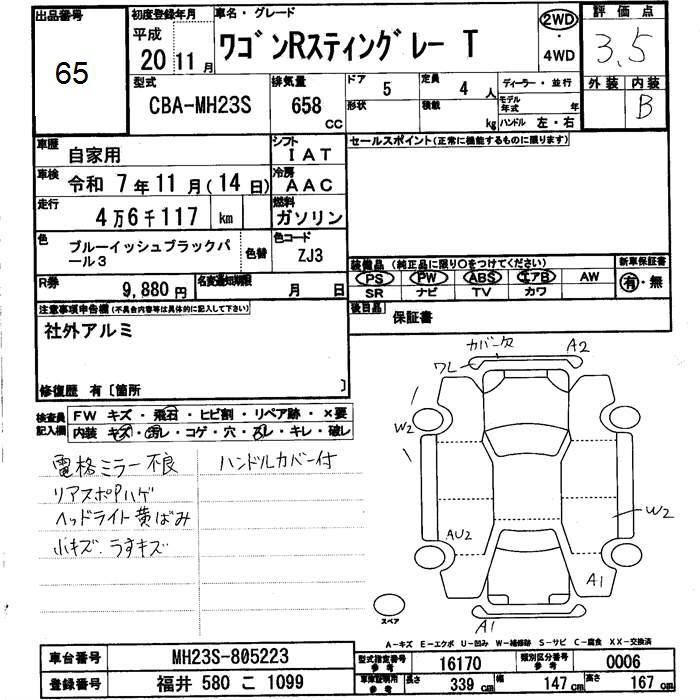 出品番号 初度登録年月 車名・グレード 評価点
65 平成 20 11月 ワゴンRスティングレー T 2WD 4WD 3.5
型式 排気量 ドア 5 定員 4人 ディーラー・並行 外装 内装
CBA-MH23S 658 CC 形状 積載 kg モデル年式 年 B
ハンドル 左・右
車歴 自家用 シフト IAT セールスポイント(正常に機能するものに限ります)
車検 令和 7年11月(14日) 冷房 AAC
走行 4万6千117 km 燃料 ガソリン
色 ブルーイッシュブラックパール3 色替 色コード ZJ3
装備品(純正品に限り○をつけてください) 新車保証書
R券 9,880円 名変通知期限 月 日 PS PW ABS エアB AW 有・無
SR ナビ TV カワ
注意事項申告欄(不具合内容等は具体的に記入して下さい) 後日品 保証書
社外アルミ
修復歴 有〔箇所 〕
検査員記入欄 FW キズ・飛石・ヒビ割・リペア跡・×要
内装 キズ・汚レ・コゲ・穴・スレ・キレ・破レ
電格ミラー不良 ハンドルカバー付
リアスポPハゲ
ヘッドライト黄ばみ
小キズ、うすキズ
カバー欠 A2
ワレ
W2
W2
AU2
A1
A1
スペア
A-キズ E-エクボ U-凹み W-補修跡 S-サビ C-腐食 XX-交換済
車台番号 MH23S-805223 型式指定番号 参考 16170 類別区分番号 参考 0006
登録番号 福井 580 こ 1099 車検証明用 参考 長さ 339 cm 幅 147 cm 高さ 167 cm